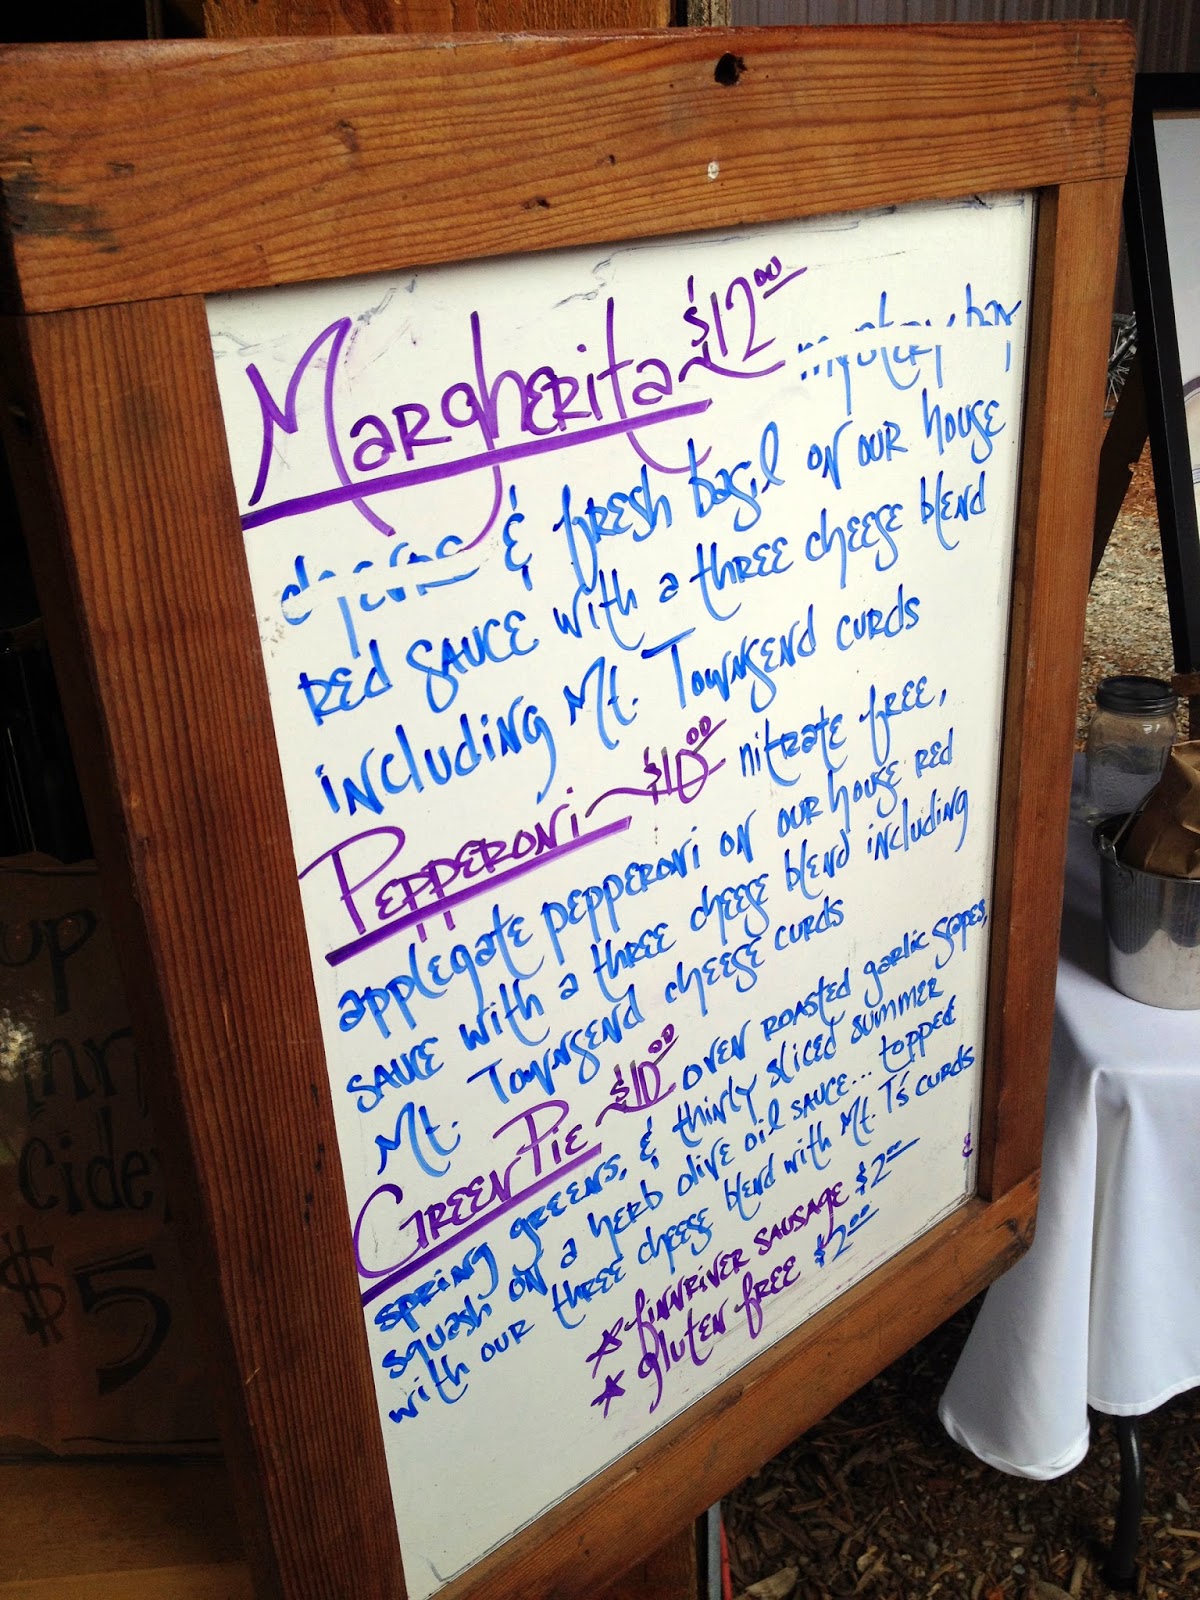 Margherita ~ $12.00
& fresh basil on our house
red sauce with a three cheese blend
including Mt. Townsend curds
Pepperoni ~ $10.00 nitrate free,
applegate pepperoni on our house red
sauce with a three cheese blend including
Mt. Townsend cheese curds
Green Pie ~ $10.00 oven roasted garlic scapes,
spring greens, & thinly sliced summer
squash on a herb olive oil sauce... topped
with our three cheese blend with Mt. T's curds
☆ finnriver sausage $2.00 &
☆ gluten free $2.00
up
Cider
$5